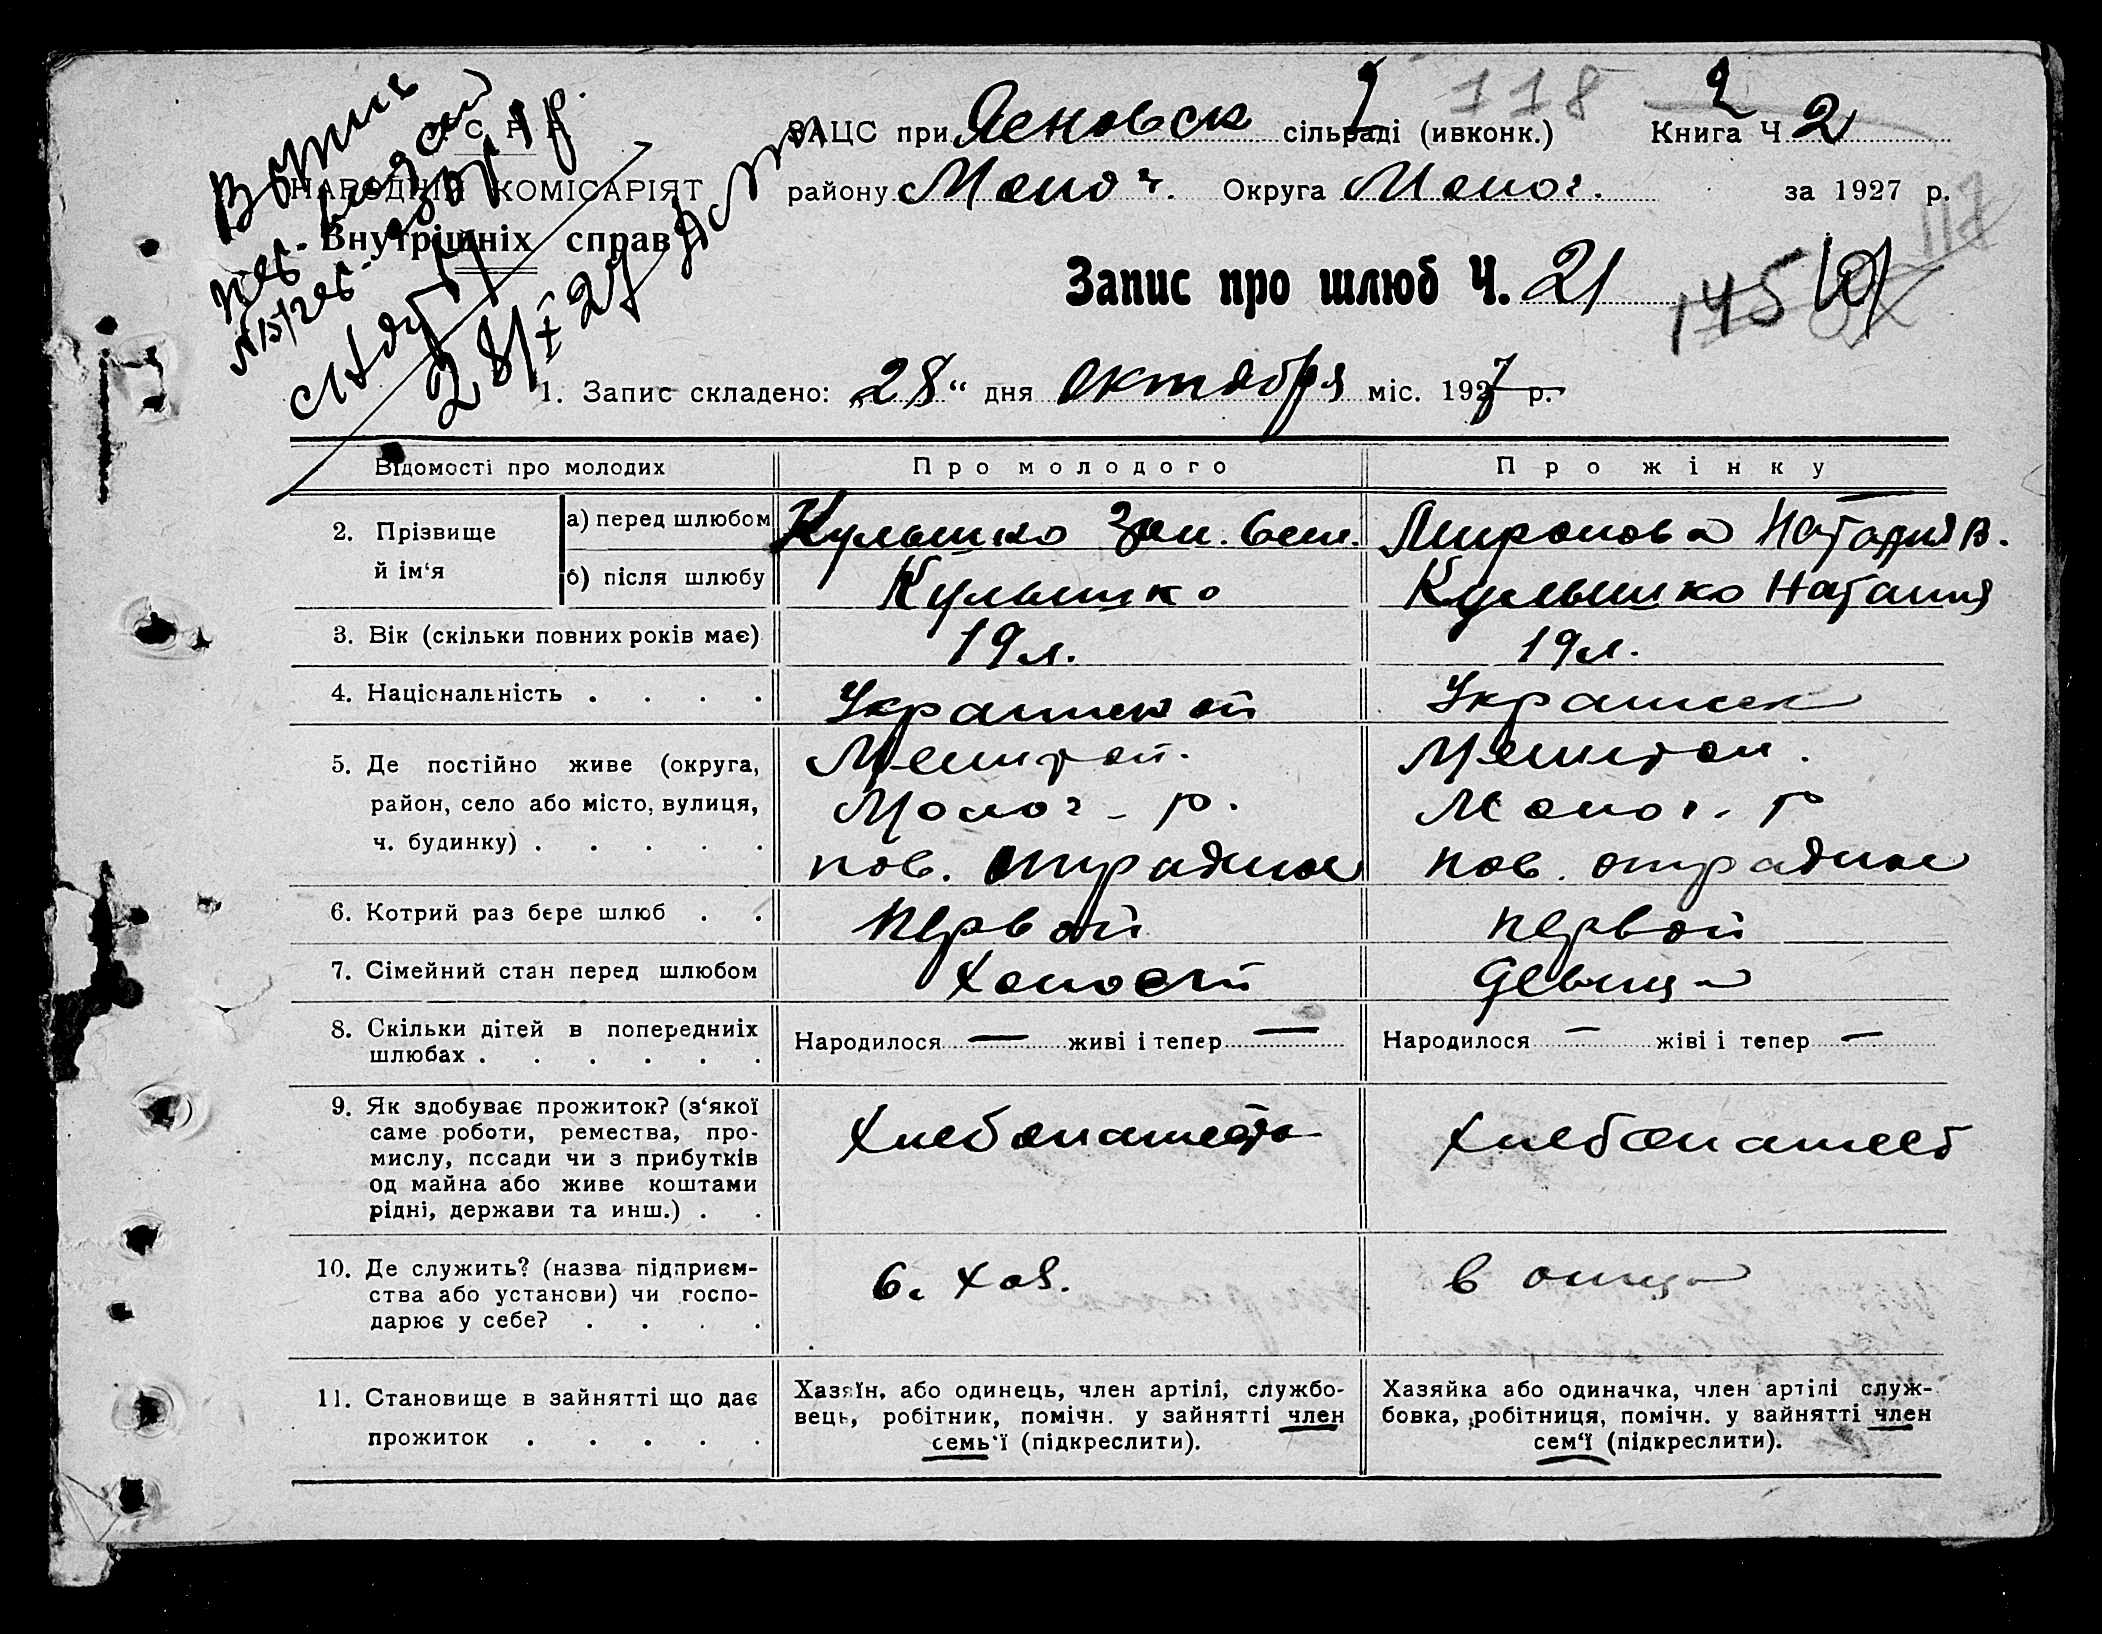 У. С. Р. Р.
НАРОДНІЙ КОМІСАРІЯТ
Внутрішніх справ
28/X 27
118
ЗАЦС при Ясновск сільраді (ивконк.) Книга Ч. 2
району Молоч. Округа Молоч. за 1927 р.
117
Запис про шлюб Ч. 21
145
1. Запис складено: „28“ дня октября міс. 1927 р.
Відомості про молодих Про молодого Про жінку
2. Прізвище й ім‘я
а) перед шлюбом Кулышко Миронова Наталия В.
б) після шлюбу Кулышко Кулышко Наталия
3. Вік (скільки повних років має) 19 л. 19 л.
4. Національність . . . . Украинский Украинск
5. Де постійно живе (округа, Мелитоп. Мелитоп.
район, село або місто, вулиця, Молоч. р. Молоч. р
ч. будинку) . . . . . пов. отрадное пов. отрадное
6. Котрий раз бере шлюб . . Первой первой
7. Сімейний стан перед шлюбом Холостй девица
8. Скільки дітей в попередниіх шлюбах . . . . . .
Народилося — живі і тепер — Народилося — жіві і тепер —
9. Як здобуває прожиток? (з‘якої
саме роботи, ремества, про-
мислу, посади чи з прибутків
од майна або живе коштами
рідні, держави та инш.) . .
Хлебопашество Хлебопашест
10. Де служить? (назва підприєм-
ства або установи) чи госпо-
дарює у себе? . . . .
в. хоз. в отца
11. Становище в зайнятті що дає
прожиток . . . . .
Хазяїн, або одинець, член артілі, службо-
вець, робітник, помічн. у зайнятті член
семь‘ї (підкреслити).
Хазяйка або одиначка, член артілі служ-
бовка, робітниця, помічн. у зайнятті член
сем‘ї (підкреслити).